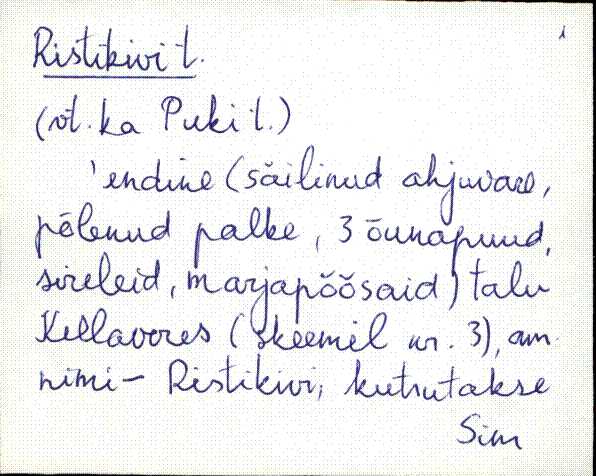 Ristikivi t.
(vt. ka Puki t.)
'endine (säilinud ahjuvare,
põlenud palke, 3 õunapuud,
sireleid, marjapõõsaid) talu
Kellaveres (skeemil nr. 3), am.
nimi – Ristikivi, kutsutakse
Sim